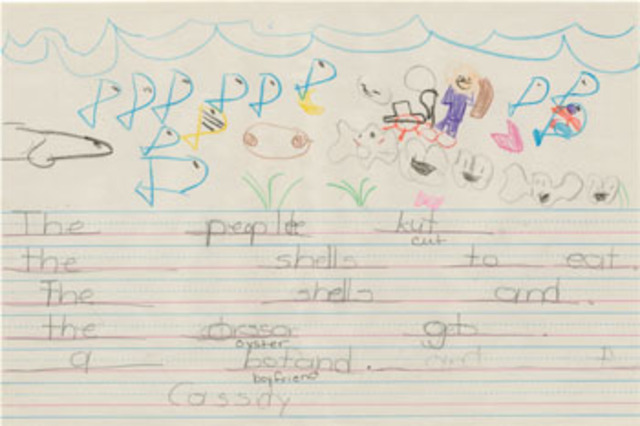 The people kut
cut
the shells to eat.
The shells and.
the gets.
oyster
a botand.
boyfriend
Cassdy